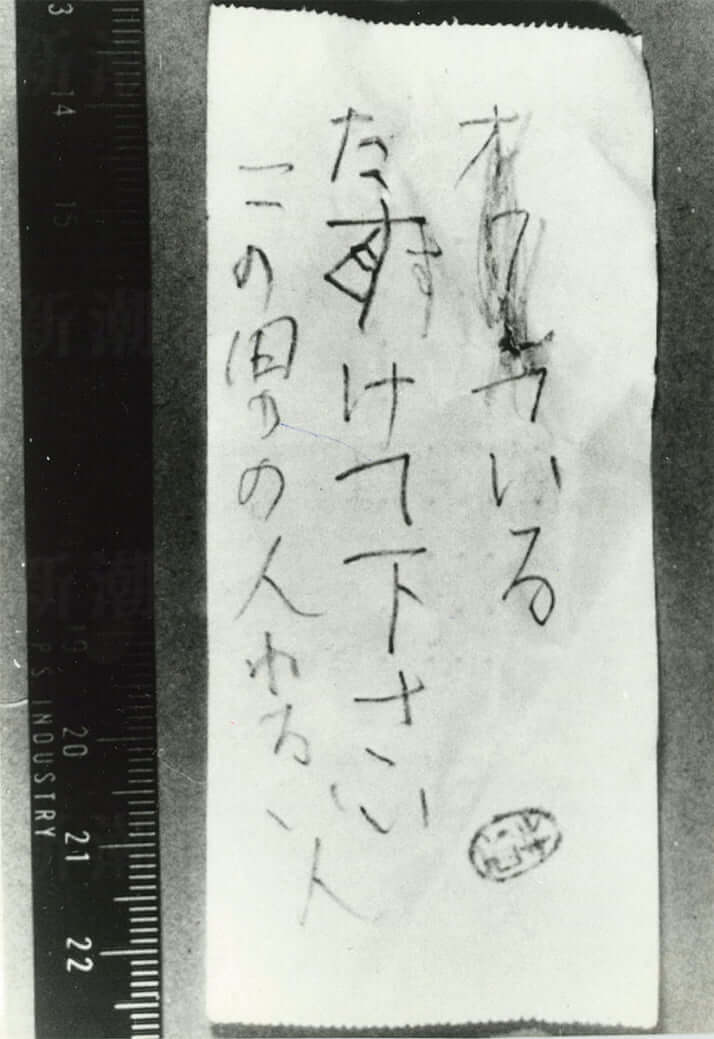 オワれている
たすけて下さい
この男の人わるい人
14
15
19
20
21
22
PS INDUSTRY
新潮
新潮
新潮